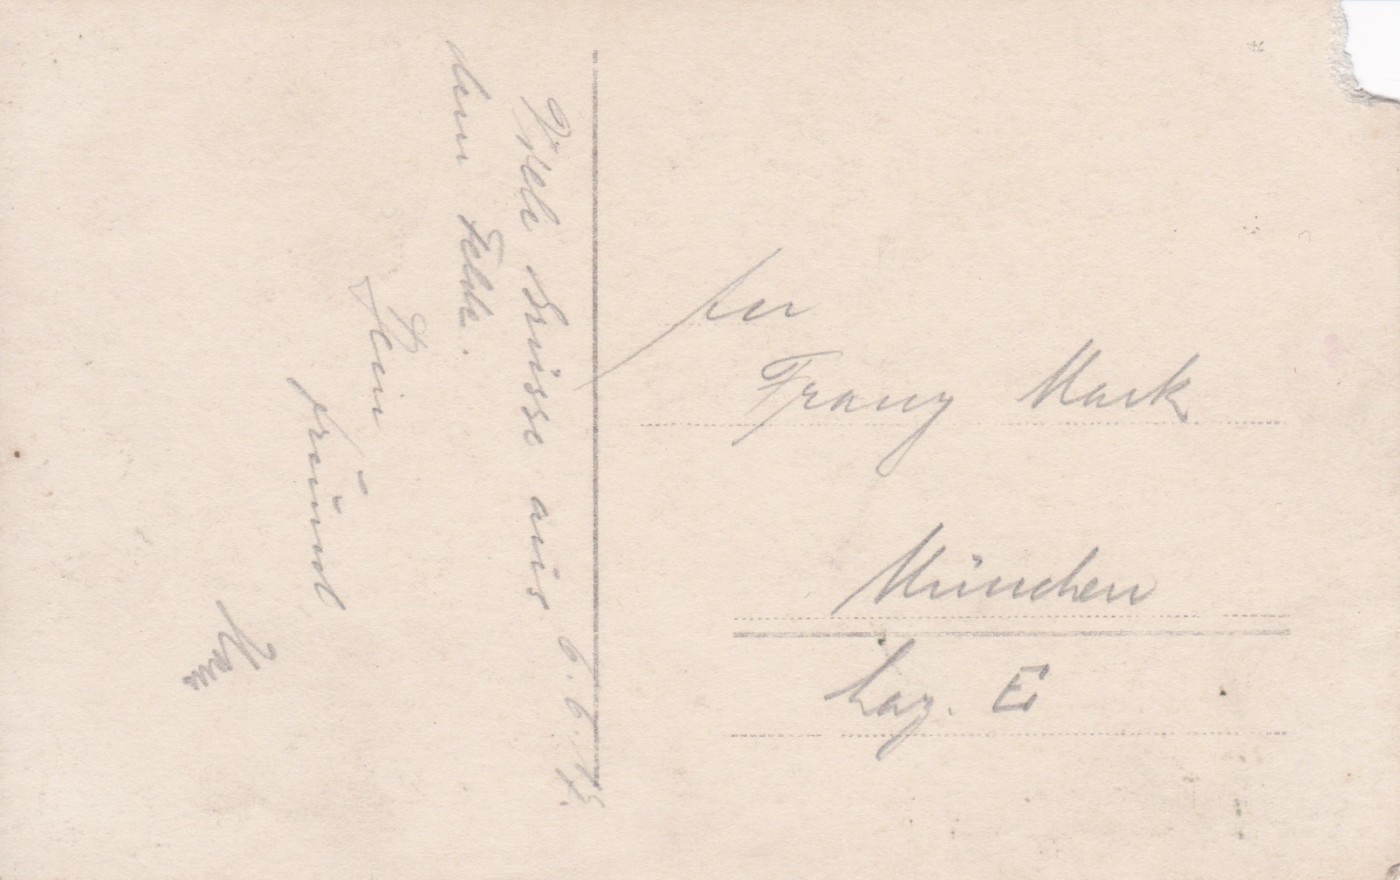 Viele Grüsse aus
dem Felde.
Dein
Freund
6.6.17.
Franz Mark
München
Laz. E